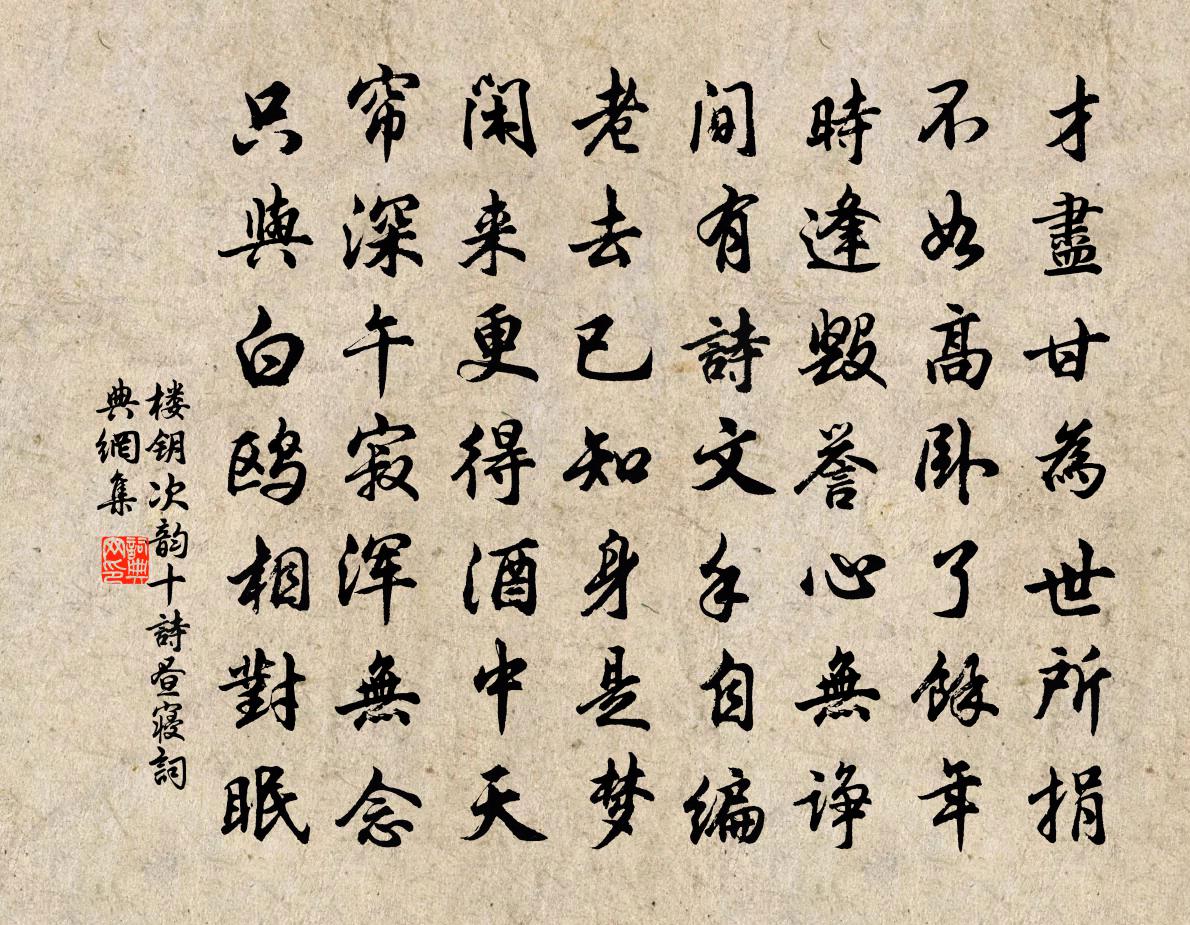 才盡甘為世所捐
不如高卧了餘年
時逢毀誉心無諍
间有詩文手自编
老去已知身是梦
闲来更得酒中天
帘深午寂浑無念
只與白鸥相對眠
楼钥次韵十詩昼寝詞
典網集
詞典
网印